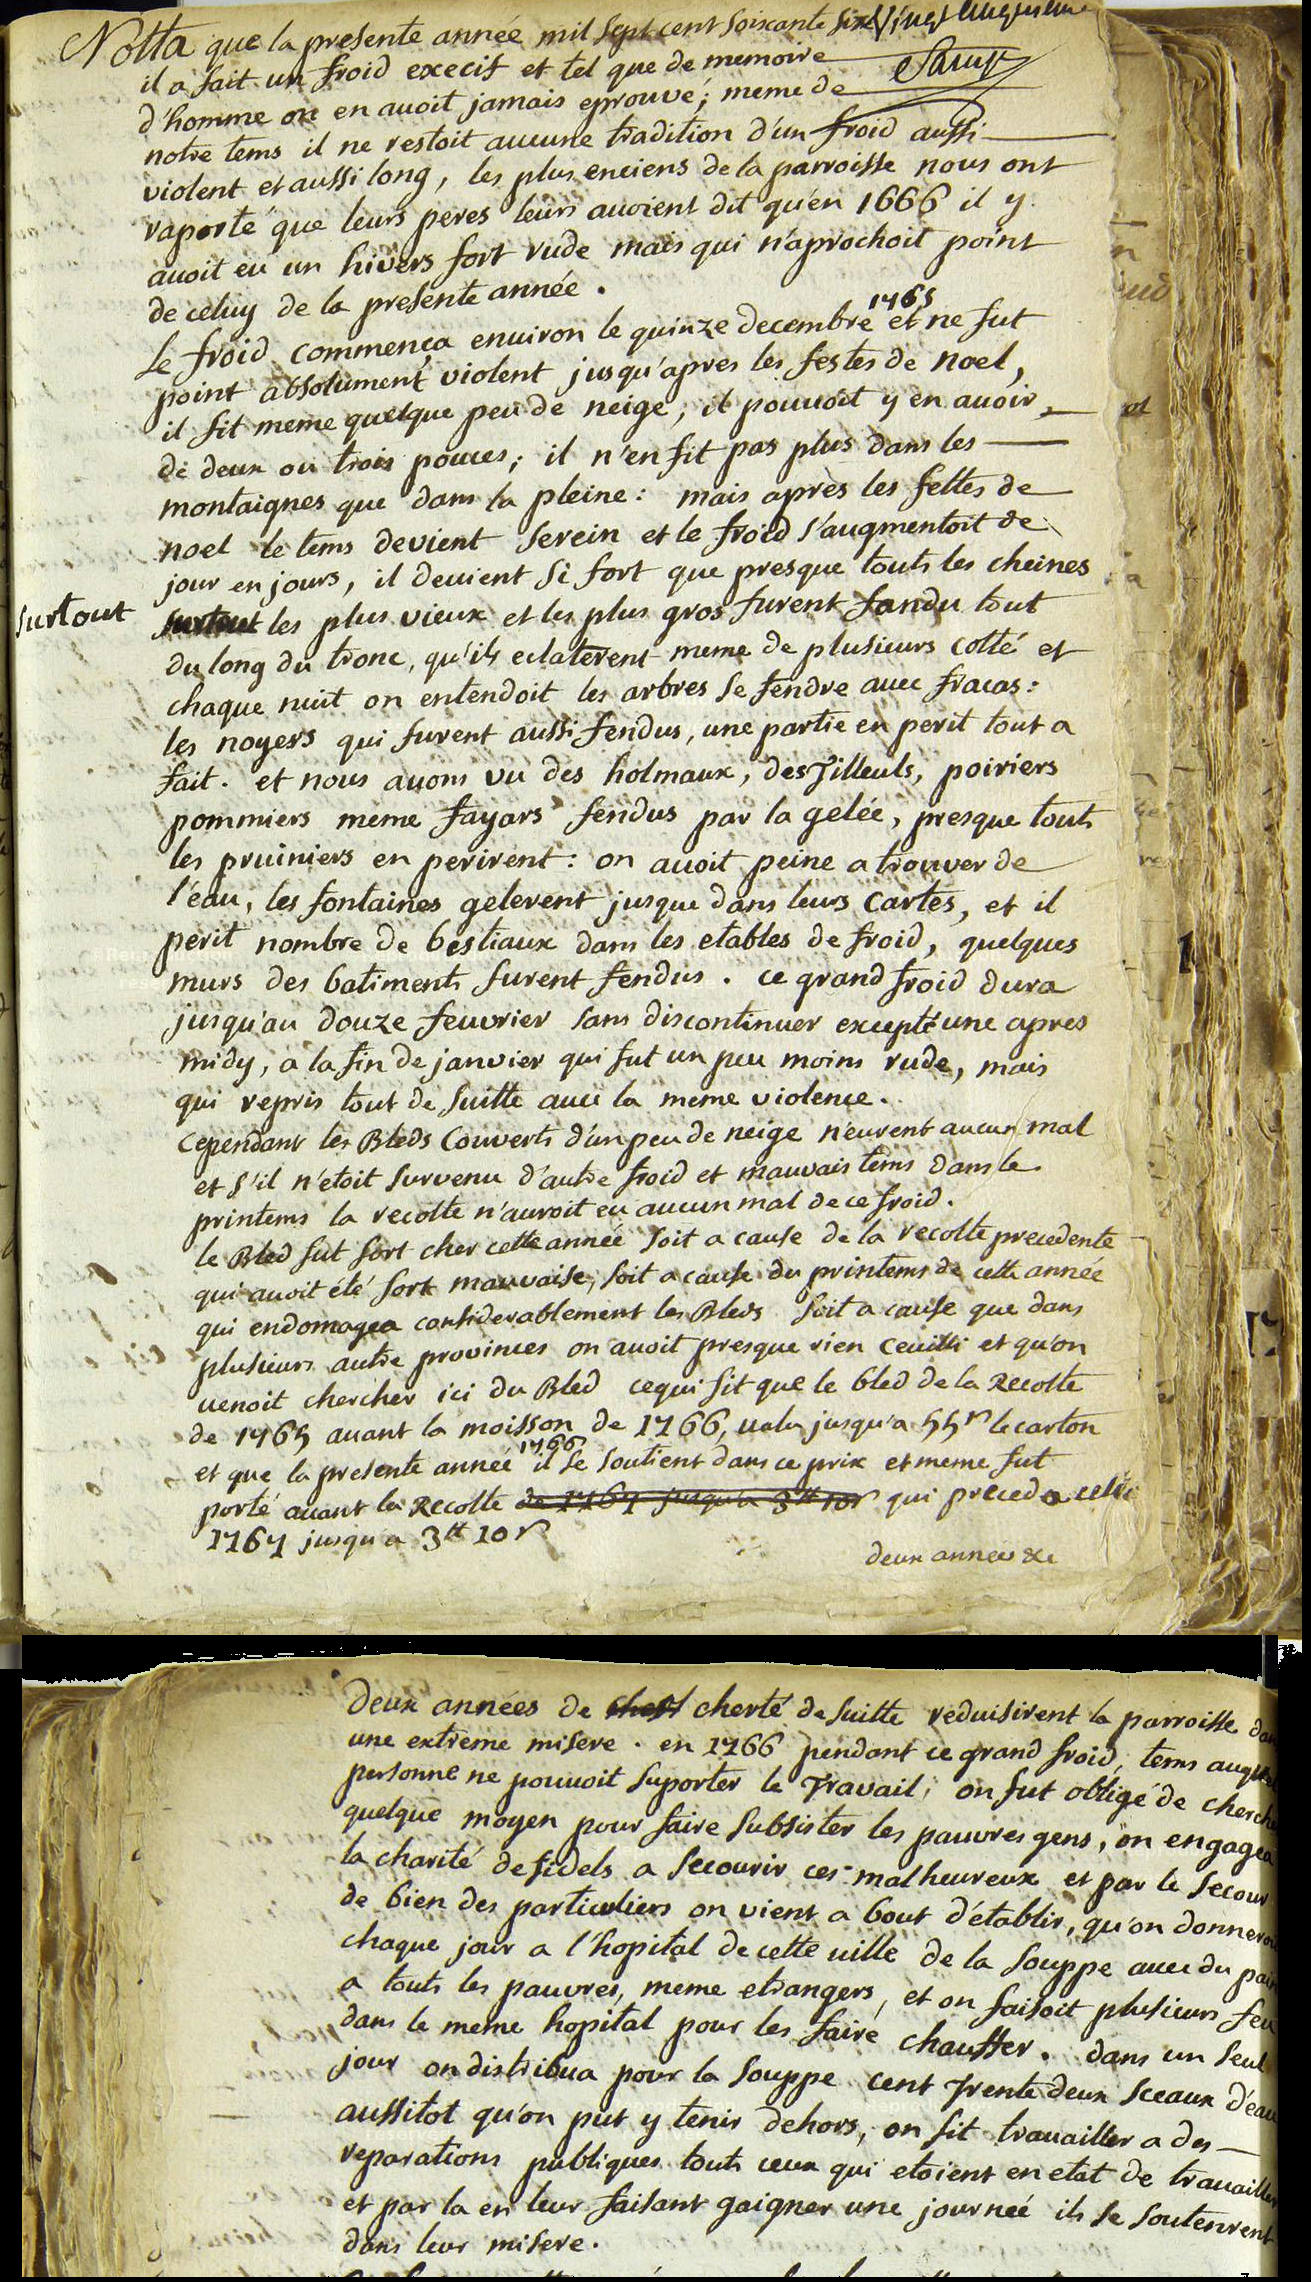 Notta que la presente année mil sept cent soixante six vingt cinquieme
il a fait un froid execif et tel que de memoire
d'homme on en avoit jamais eprouvé; meme de
notre tems il ne restoit aucune tradition d'un froid aussi
violent et aussi long, les plus enciens de la parroisse nous ont
raporté que leurs peres leurs avoient dit qu'en 1666 il y
avoit eu un hivers fort rude mais qui n'aprochoit point
de celuy de la presente année.
1765
Le froid commença environ le quinze decembre et ne fut
point absolument violent jusqu'apres les festes de noel,
il fit meme quelque peu de neige, il pouvoit y en avoir
de deux ou trois pouces; il n'en fit pas plus dans les
montaignes que dans la pleine: mais apres les festes de
noel le tems devient serein et le froid s'augmentoit de
jour en jours, il devient si fort que presque touts les cheines
surtout
surtout les plus vieux et les plus gros furent fandu tout
du long du tronc, qu'ils eclaterent meme de plusieurs cotté et
chaque nuit on entendoit les arbres se fendre avec fracas:
les noyers qui furent aussi fendus, une partie en perit tout a
fait. et nous avons vu des holmaux, des Tilleuls, poiriers
pommiers meme fayars fendus par la gelée, presque touts
les pruiniers en perirent: on avoit peine a trouver de
l'eau, les fontaines gelerent jusque dans leurs cartes, et il
perit nombre de bestiaux dans les etables de froid, quelques
murs des batiments furent fendus. ce grand froid dura
jusqu'au douze feuvrier sans discontinuer excepté une apres
midy, a la fin de janvier qui fut un peu moins rude, mais
qui repris tout de suitte avec la meme violence.
cependant les Bleds couverts d'un peu de neige n'eurent aucun mal
et s'il n'etoit survenu d'autre froid et mauvais tems dans le
printems la recolte n'auroit eu aucun mal de ce froid.
le Bled fut fort cher cette année soit a cause de la recolte precedente
qui avoit été fort mauvaise, soit a cause du printems de cette année
qui endomagea considerablement les Bleds soit a cause que dans
plusieurs autre provinces on avoit presque rien ceuilli et qu'on
venoit chercher ici du Bled ce qui fit que le bled de la Recolte
de 1765 avant la moisson de 1766, valu jusqu'a 55 s le carton
1766
et que la presente année il se soutient dans ce prix et meme fut
porté avant la Recolte de 1767 jusqu'a 3 tt 10 s qui preceda celle
1767 jusqu'a 3 tt 10 s
deux années &c
deux années de cherté de suitte reduisirent la parroisse
une extreme misere. en 1766 pendant ce grand froid, tems
personne ne pouvoit suporter le Travail, on fut obligé de
quelque moyen pour faire subsister les pauvres gens, on engagea
la charité de fidels a secourir ces malheureux et par le secour
de bien des particuliers on vient a bout d'établir, qu'on donneroit
chaque jour a l'hopital de cette ville de la souppe avec du pain
a touts les pauvres, meme etrangers, et on faisoit plusieurs feu
dans le meme hopital pour les faire chauffer. dans un seul
jour on distribua pour la souppe cent trente deux sceaux d'eau
aussitot qu'on put y tenir dehors, on fit travailler a des
reparations publiques touts ceux qui etoient en etat de travailler
et par la en leur faisant gaigner une journeé ils se soutenrent
dans leur misere.